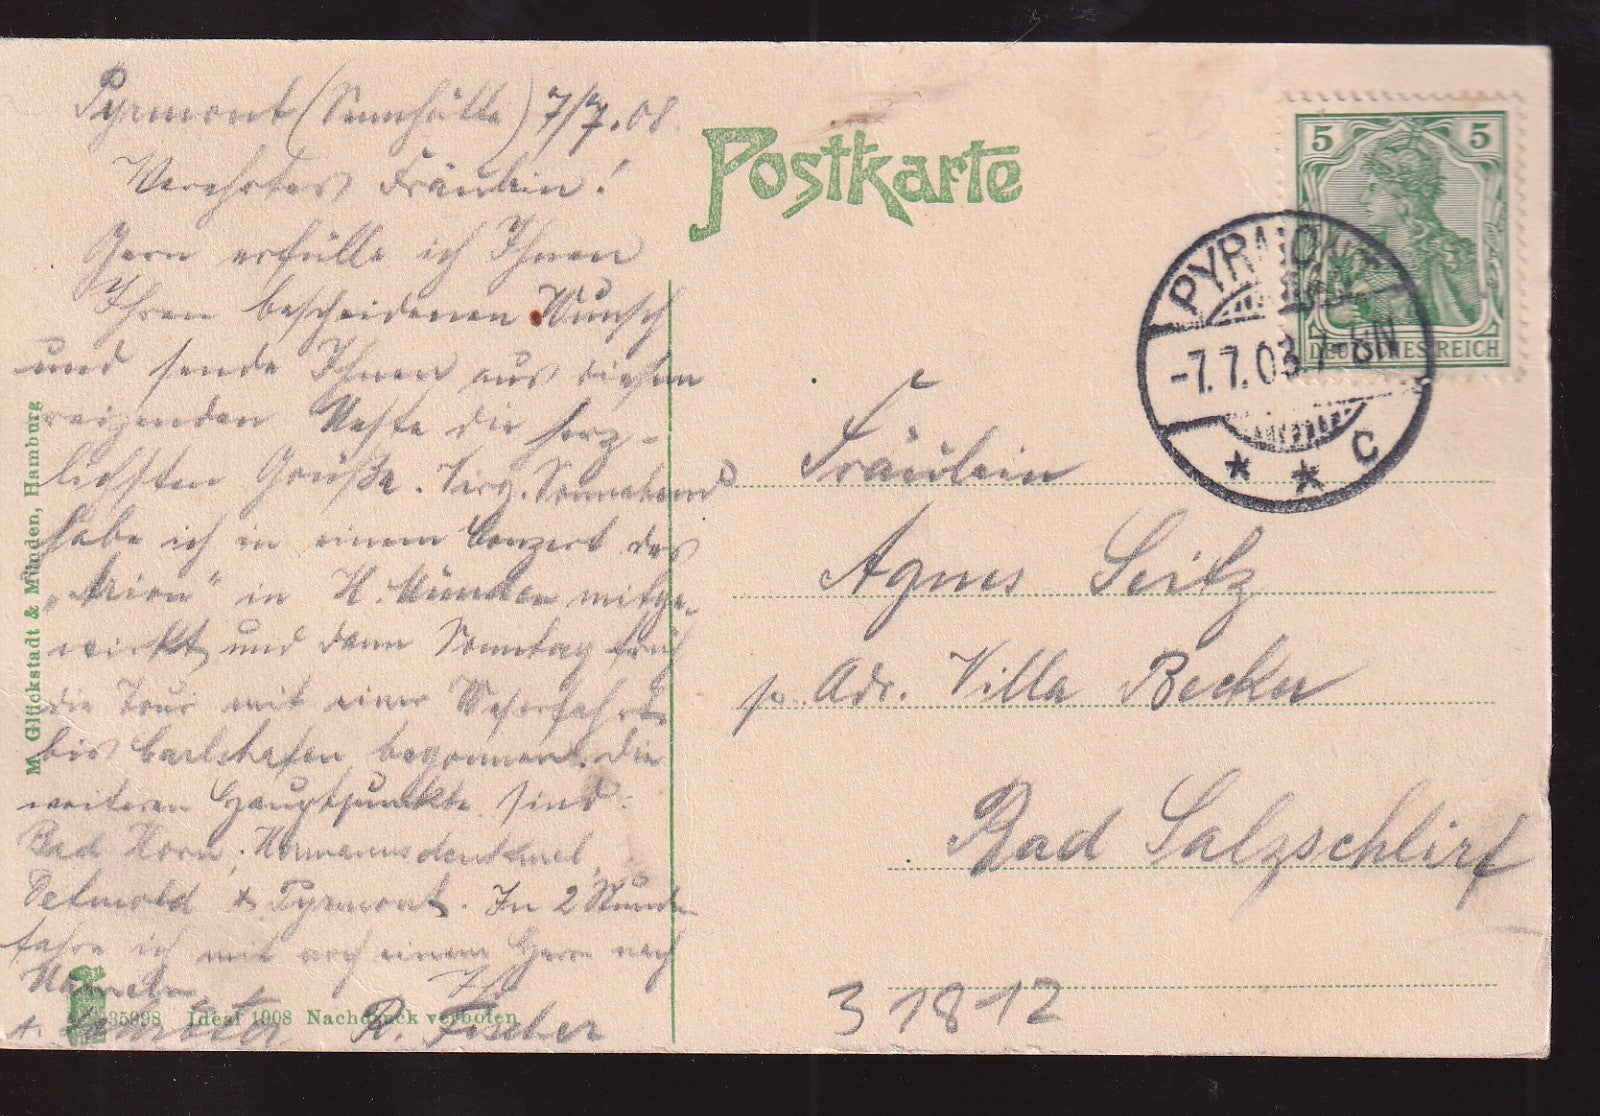 Pyrmont (Sennhütte) 7/7.08.
Verehrtes Fräulein!
Gern erfülle ich Ihnen
Ihren bescheidenen Wunsch
und sende Ihnen aus diesem
reizenden Neste die herz-
lichsten Grüße. Verg. Sonnabend
habe ich in einem Conzert des
„Arion" in H. Münden mitge-
wirkt und dann Sonntag früh
die Tour mit einer Weserfahrt
bis Carlshafen begonnen. Die
weiteren Hauptpunkte sind:
Bad Horn, Hermannsdenkmal,
Detmold & Pyrmont. In 2 Stunden
fahre ich mit noch einem Herrn nach
Hameln
R. Fischer
Postkarte
5 5
DEUTSCHES REICH
PYRMONT
-7.7.08.7-8N
* * C
Fräulein
Agnes Seitz
p. Adr. Villa Becker
Bad Salzschlirf
31812
M. Glückstadt & Münden, Hamburg
35998 Ideal 1908 Nachdruck verboten